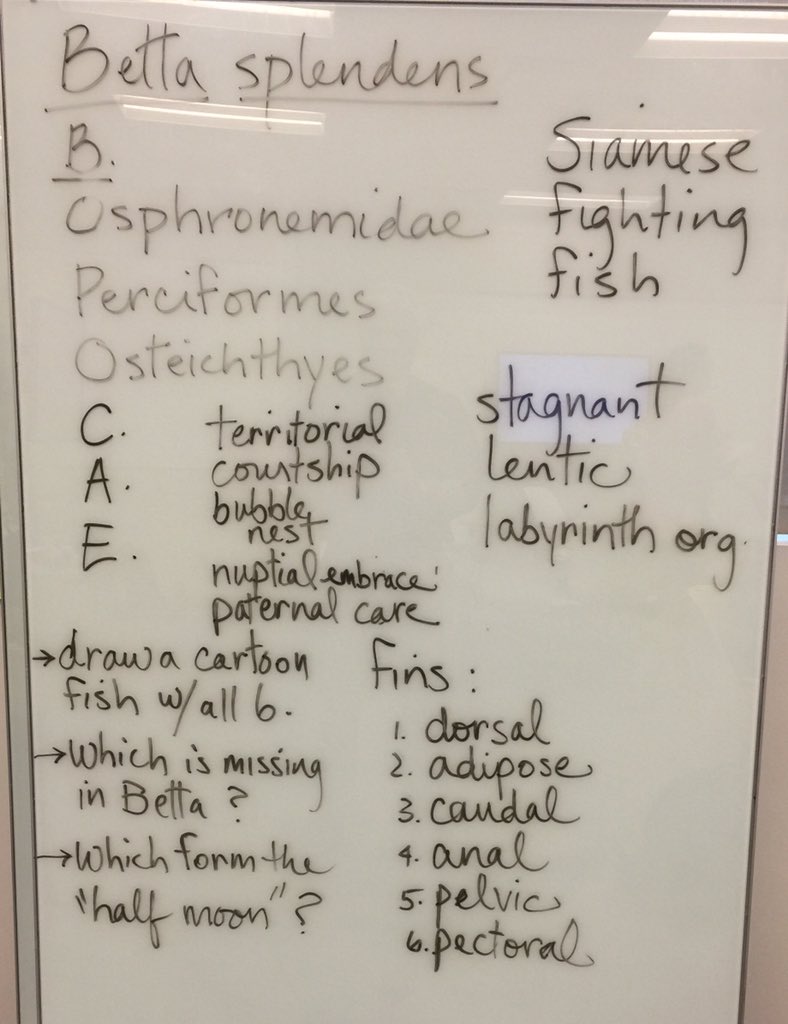 Betta splendens
B.
Osphronemidae
Perciformes
Osteichthyes
Siamese
fighting
fish
stagnant
lentic
labyrinth org.
C.
A.
E.
territorial
courtship
bubble
nest
nuptial embrace
paternal care
→draw a cartoon
fish w/ all 6.
→Which is missing
in Betta?
→Which form the
"half moon"?
Fins:
1. dorsal
2. adipose
3. caudal
4. anal
5. pelvic
6. pectoral